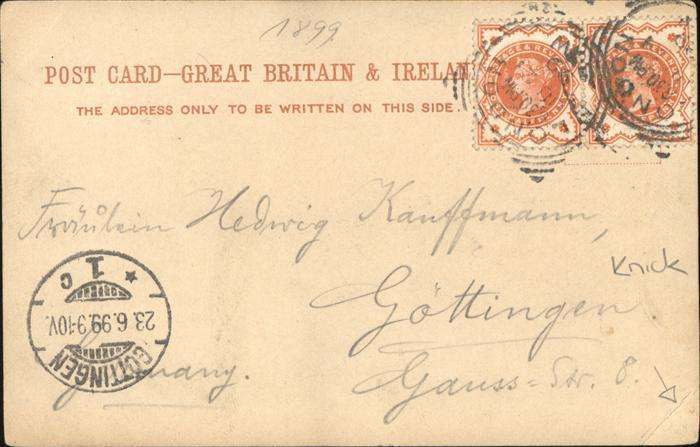 1899
POST CARD—GREAT BRITAIN & IRELAN
THE ADDRESS ONLY TO BE WRITTEN ON THIS SIDE.
Fräulein Hedwig Kauffmann,
Knick
Göttingen.
Germany.
Gauss-Str. 8.
1 c
23.6.99.9-10V.
GÖTTINGEN